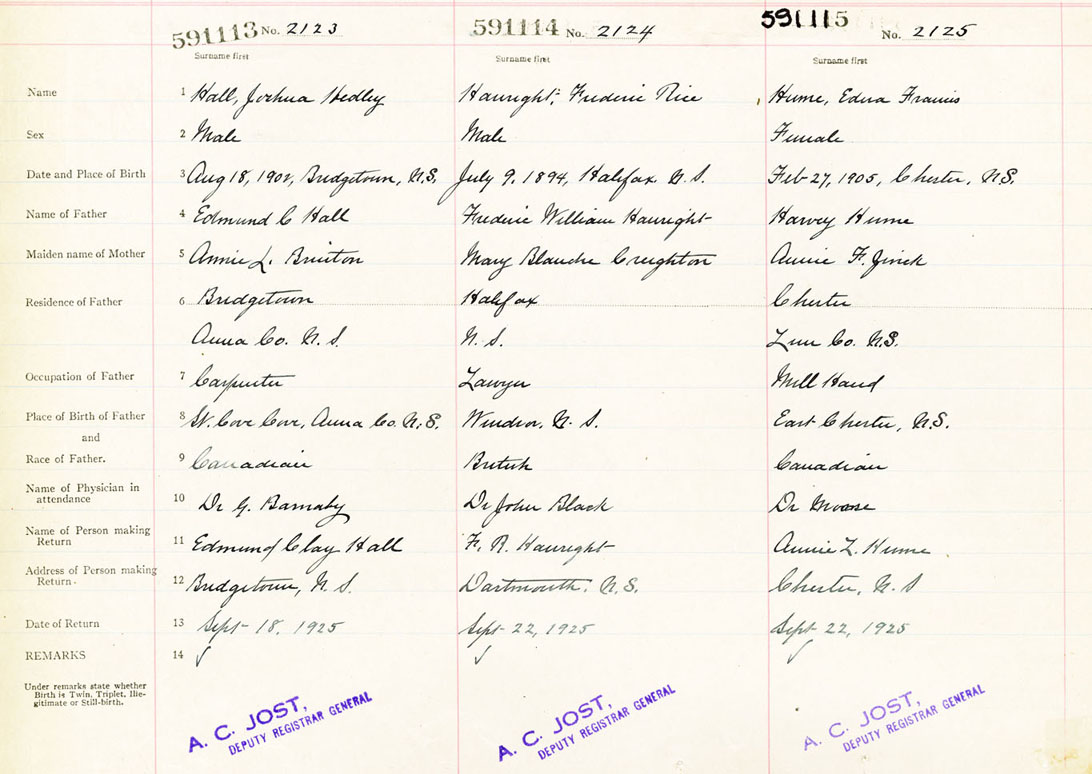 591113 No. 2123 591114 No. 2124 591115 No. 2125
Surname first Surname first Surname first
Name 1 Hall, Joshua Hedley Hawright, Frederic Rice Hume, Edna Francis
Sex 2 Male Male Female
Date and Place of Birth 3 Aug 18, 1902, Bridgetown, N.S. July 9, 1894, Halifax N.S. Feb 27, 1905, Chester, N.S.
Name of Father 4 Edmund C Hall Frederic William Hawright Harvey Hume
Maiden name of Mother 5 Annie L. Mary Blanche Creighton Annie F.
Residence of Father 6 Bridgetown Halifax Chester
Anna Co. N.S. N.S. Lun Co. N.S.
Occupation of Father 7 Carpenter Lawyer Mill Hand
Place of Birth of Father 8 Cove, Anna Co. N.S. Windsor, N.S. East Chester, N.S.
and
Race of Father. 9 Canadian British Canadian
Name of Physician in
attendance 10 Dr G. Barnaby Dr John Black Dr Morse
Name of Person making
Return 11 Edmund Clay Hall F. R. Hawright Annie Z. Hume
Address of Person making
Return. 12 Bridgetown, N.S. Dartmouth, N.S. Chester, N.S
Date of Return 13 Sept 18, 1925 Sept 22, 1925 Sept 22, 1925
REMARKS 14 ✓ ✓ ✓
Under remarks state whether
Birth is Twin, Triplet, Ille-
gitimate or Still-birth.
A. C. JOST, A. C. JOST, A. C. JOST,
DEPUTY REGISTRAR GENERAL DEPUTY REGISTRAR GENERAL DEPUTY REGISTRAR GENERAL